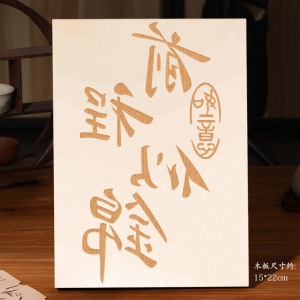 前程似錦
木板尺寸约:
15*22cm